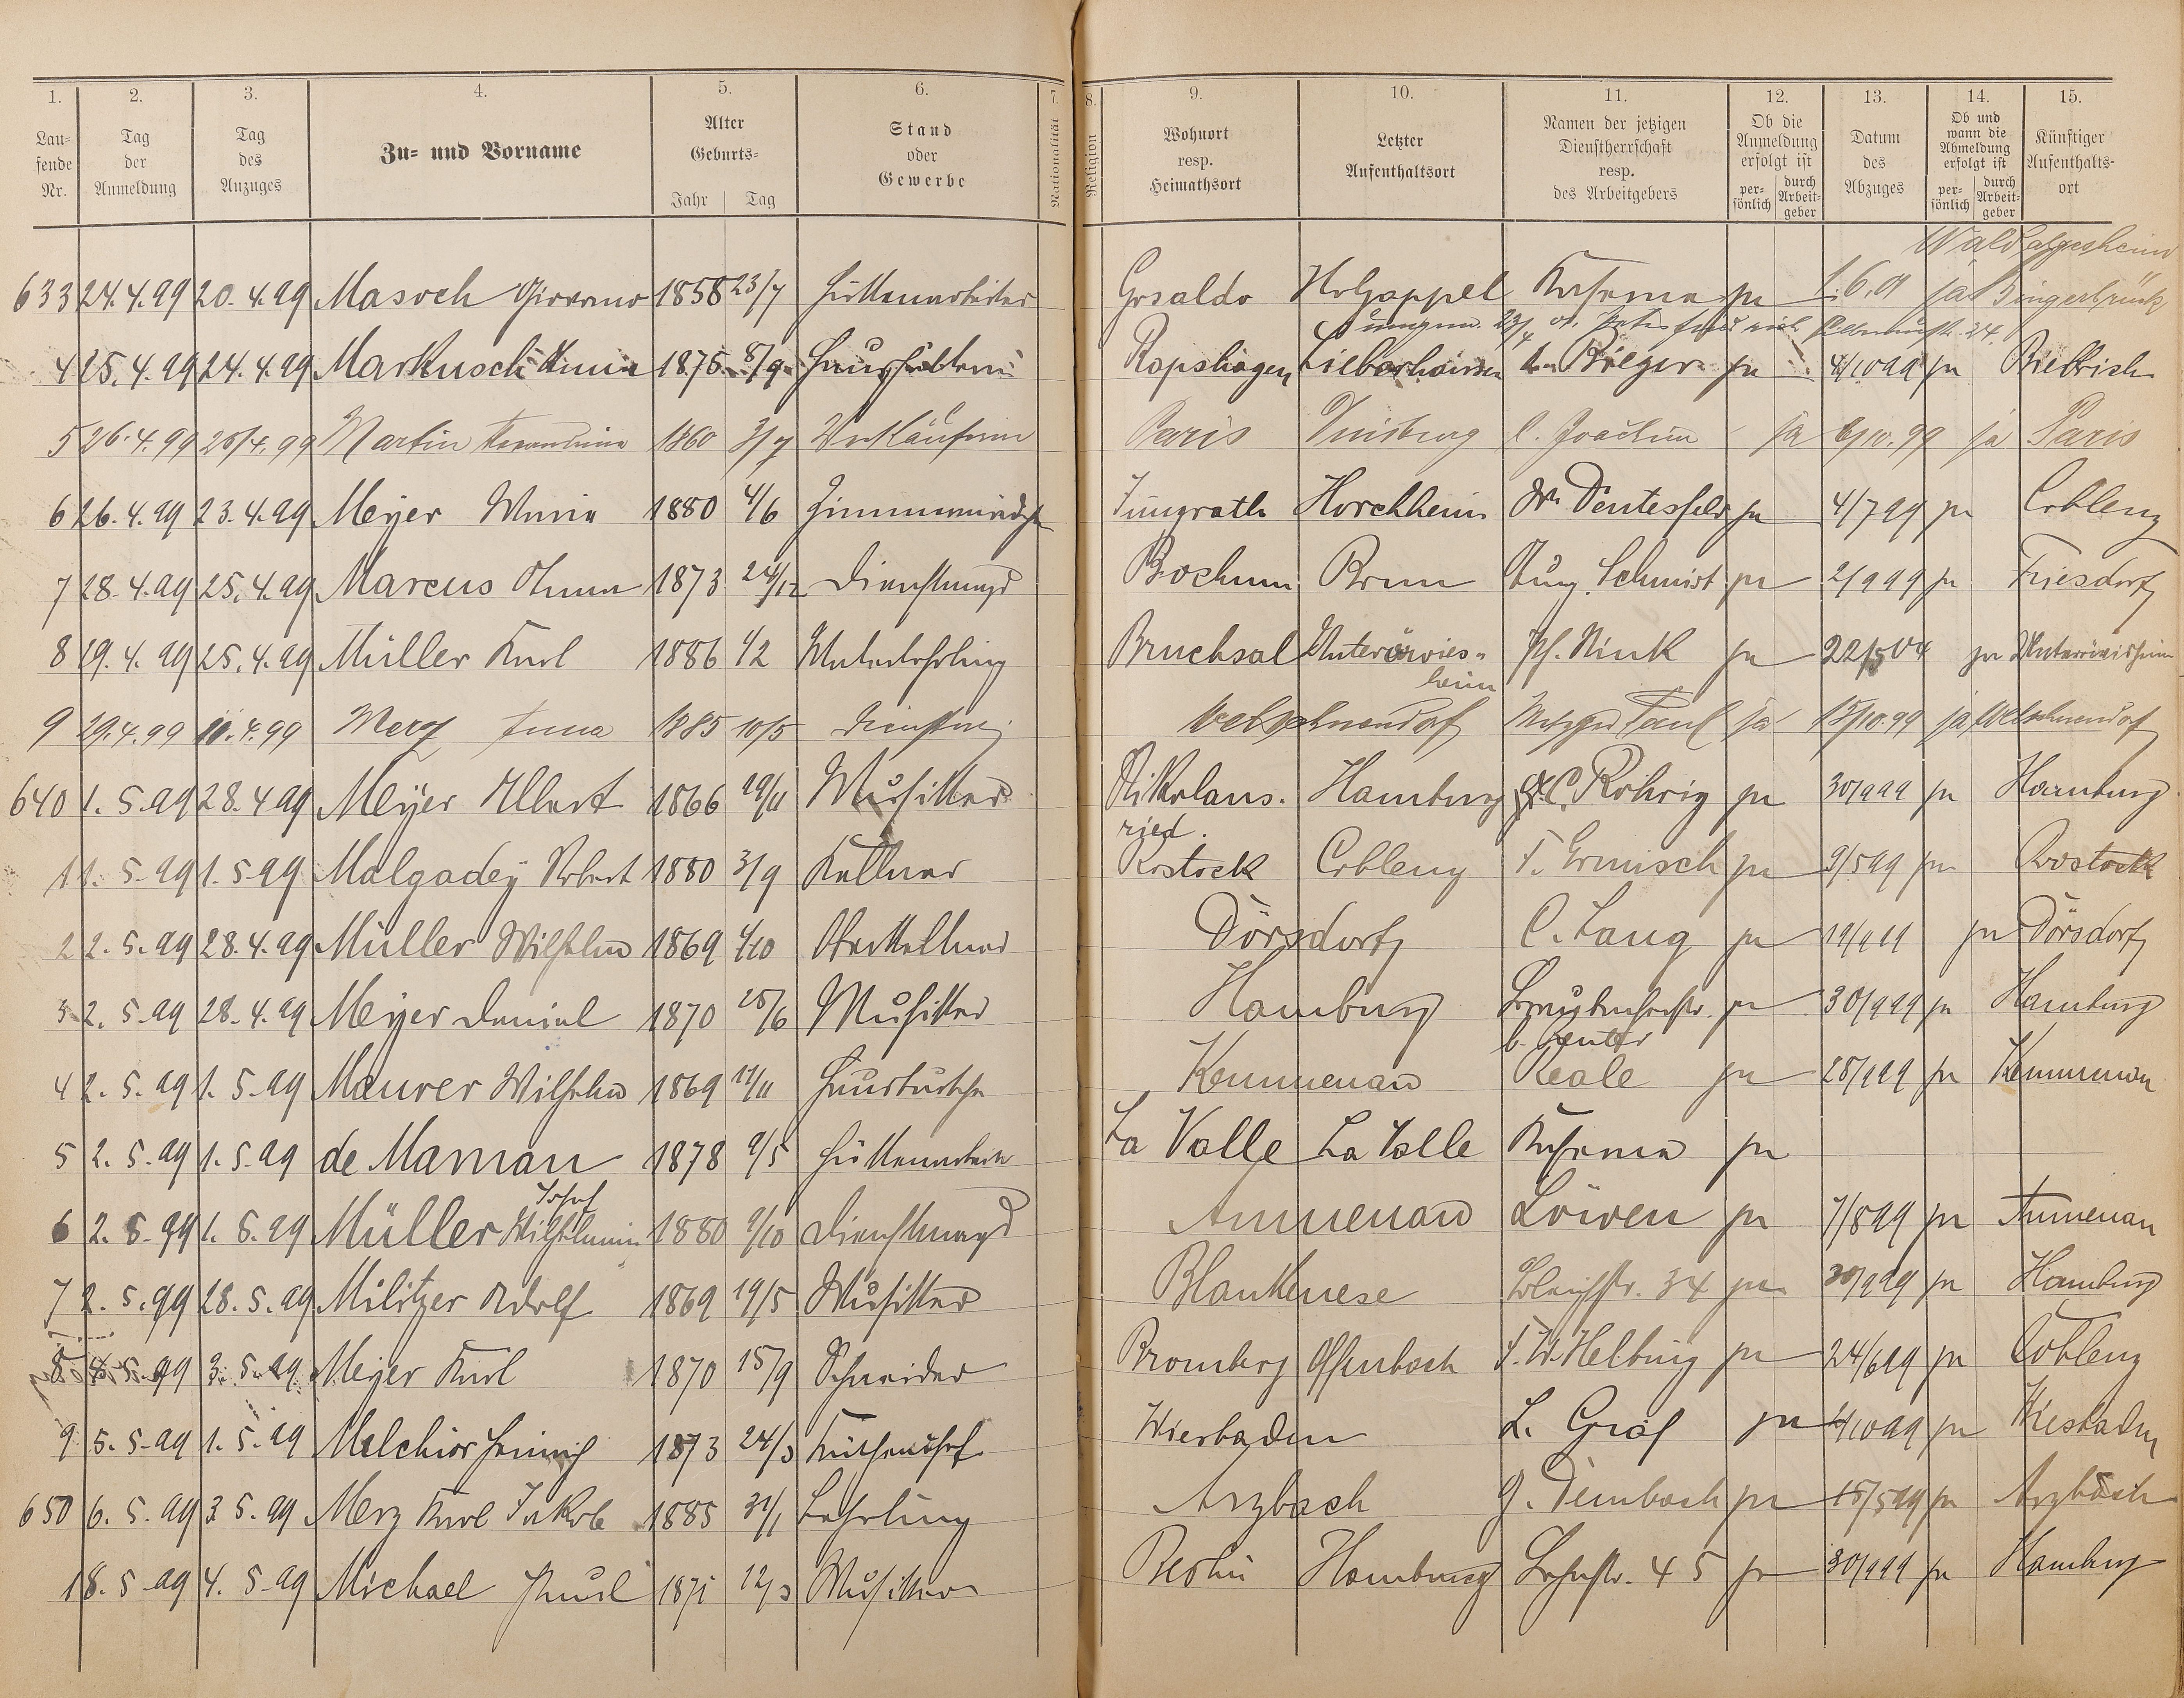 1. 2. 3. 4. 5. 6. 7. 8. 9. 10. 11. 12. 13. 14. 15.
Laufende Nr. Tag der Anmeldung Tag des Anzuges Zu- und Vorname Alter Geburts- Jahr Tag Stand oder Gewerbe Nationalität Religion Wohnort resp. Heimathsort Letzter Aufenthaltsort Namen der jetzigen Dienstherrschaft resp. des Arbeitgebers Ob die Anmeldung erfolgt ist persönlich durch Arbeitgeber Datum des Abzuges Ob und wann die Abmeldung erfolgt ist persönlich durch Arbeitgeber Künftiger Aufenthaltsort
Waldalgesheim
633 24.4.99 20.4.99 Masoch 1858 23/7 Hüttenarbeiter Gosaldo Holzappel ja 1.6.01 ja Bingerbrück
4 25.4.99 24.4.99 Markusch 1875 8/9 Rapshagen ja 4/10 99 ja Biebrich
5 26.4.99 25/4.99 Martin 1860 3/7 Verkäuferin Paris Duisburg C. Joachim ja 6/10.99 ja Paris
6 26.4.99 23.4.99 Meyer Maria 1880 4/6 Jüngrath Horchheim ja 4/7 99 ja Coblenz
7 28.4.99 25.4.99 Marcus Anna 1873 24/12 Dienstmagd Bochum Bonn Aug. Schmidt ja 2/9 99 ja Friesdorf
8 29.4.99 25.4.99 Müller Karl 1886 1/2 Malerlehrling Bruchsal Unteröwisheim Ph. Nink ja 22/5 04 ja Unteröwisheim
9 29.4.99 10.4.99 Merz Anna 1885 10/5 Welschneudorf Metzger Paul ja 15/10.99 ja Welschneudorf
640 1.5.99 28.4 99 Meyer Albert 1866 19/11 Musiker Nikolausried. Hamburg C. Röhrig ja 30/9 99 ja Hamburg
1 1.5.99 1.5 99 Malgadey Robert 1880 3/9 Kellner Rostock Coblenz F. Ermisch ja 9/5 99 ja Rostock
2 2.5.99 28.4.99 Müller Wilhelm 1869 1/10 Oberkellner Dörsdorf C. Lang ja ja Dörsdorf
3 2.5.99 28.4.99 Meyer Daniel 1870 25/6 Musiker Hamburg ja 30/9 99 ja Hamburg
4 2.5.99 1.5.99 Maurer Wilhelm 1869 11/11 Hausbursche Kemmenau Reale ja 28/9 99 ja Kemmenau
5 2.5.99 1.5.99 de Maman 1878 9/5 Hüttenarbeiter La Valle La Valle ja
Josef
6 2.5.99 1.5.99 Müller 1880 9/10 Dienstmagd Aumenau Löwen ja 7/8 99 ja Aumenau
7 2.5.99 28.5.99 Militzer Adolf 1869 19/5 Musiker Blankenese Bleichstr. 34 ja 30/9 99 ja Hamburg
8 4.5.99 3.5.99 Meyer Karl 1870 15/9 Schneider Bromberg Offenbach F. W. Helbing ja 24/6 99 ja Coblenz
9 5.5.99 1.5.99 Melchior Heinrich 1873 24/3 Küchenchef Wiesbaden L. Graf ja 4/10 99 ja Wiesbaden
650 6.5.99 3.5.99 Merz Karl Jakob 1885 31/1 Lehrling Arzbach G. Dembach ja 15/5 99 ja Arzbach
1 8.5.99 4.5.99 Michael Paul 1871 12/3 Musiker Berlin Hamburg Lahnstr. 45 ja 30/9 99 ja Hamburg